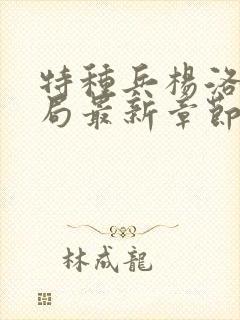 特種兵楊洛
局最新章節
林成龍